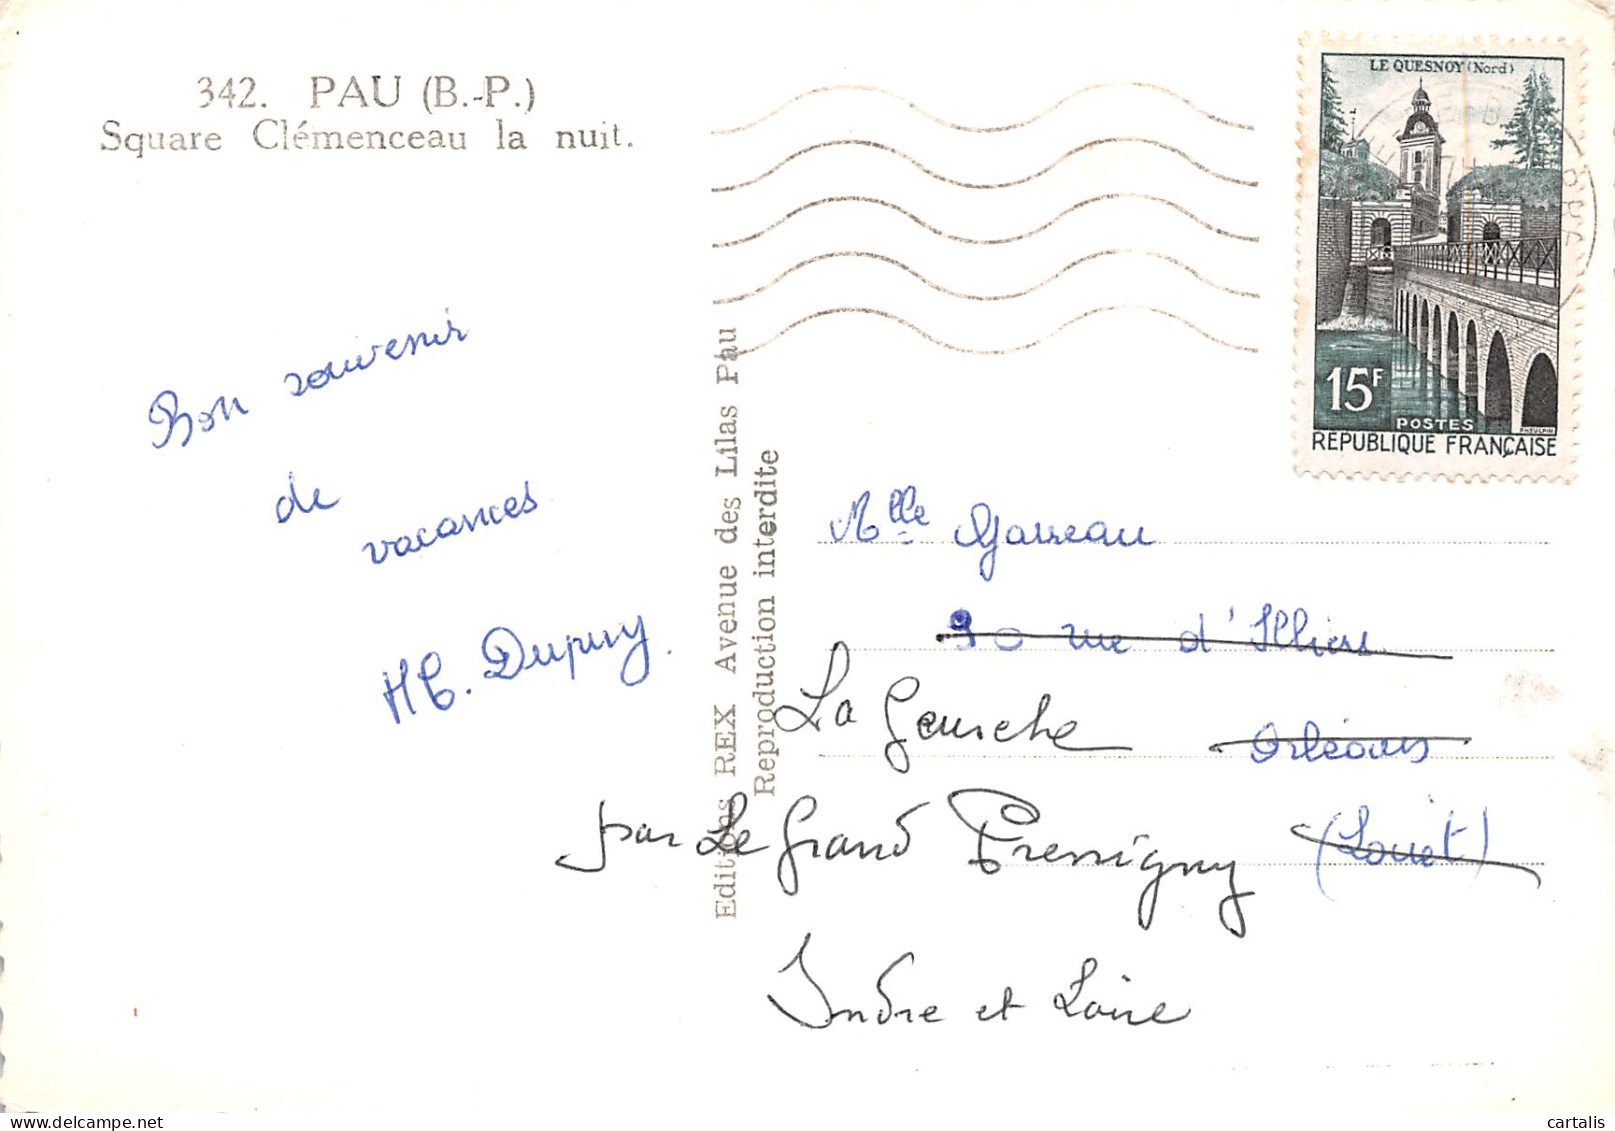 342. PAU (B.-P.)
Square Clémenceau la nuit.
LE QUESNOY (Nord)
15F
POSTES
RÉPUBLIQUE FRANÇAISE
Bon souvenir
de
vacances
HC. Dupuy.
Editions REX Avenue des Lilas Pau
Reproduction interdite
Mlle Garreau
90 rue d'Illiers
Orléans
(Loiret)
La Gauche
par Le Grand Pressigny
Indre et Loire
cartalis